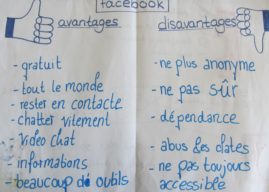 facebook
avantages
- gratuit
- tout le monde
- rester en contacte
- chatter vitement
- Video chat
- informations
- beaucoup de outils
disavantages
- ne plus anonyme
- ne pas sûr
- dépendance
- abus des dates
- ne pas toujours
accessible